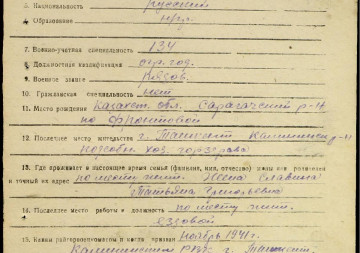 3. Национальность русский
4. Образование
7. Военно-учетная специальность 134
8. Должностная квалификация стр.
9. Военное звание
10. Гражданская специальность нет
11. Место рождения Казахст. обл. Сарагачский р-н
по фронтовой
12. Последнее место жительства г. Ташкент
хоз. горздрава
13. Где проживает в настоящее время семья (фамилия, имя, отчество) жены или родителей
и точный их адрес по месту жит. Жена
Татьяна Григорьевна
14. Последнее место работы и должность по месту жит.
ездовой
15. Каким райвоенкоматом и когда призван ноябрь 1941 г.
РВК г. Ташкент